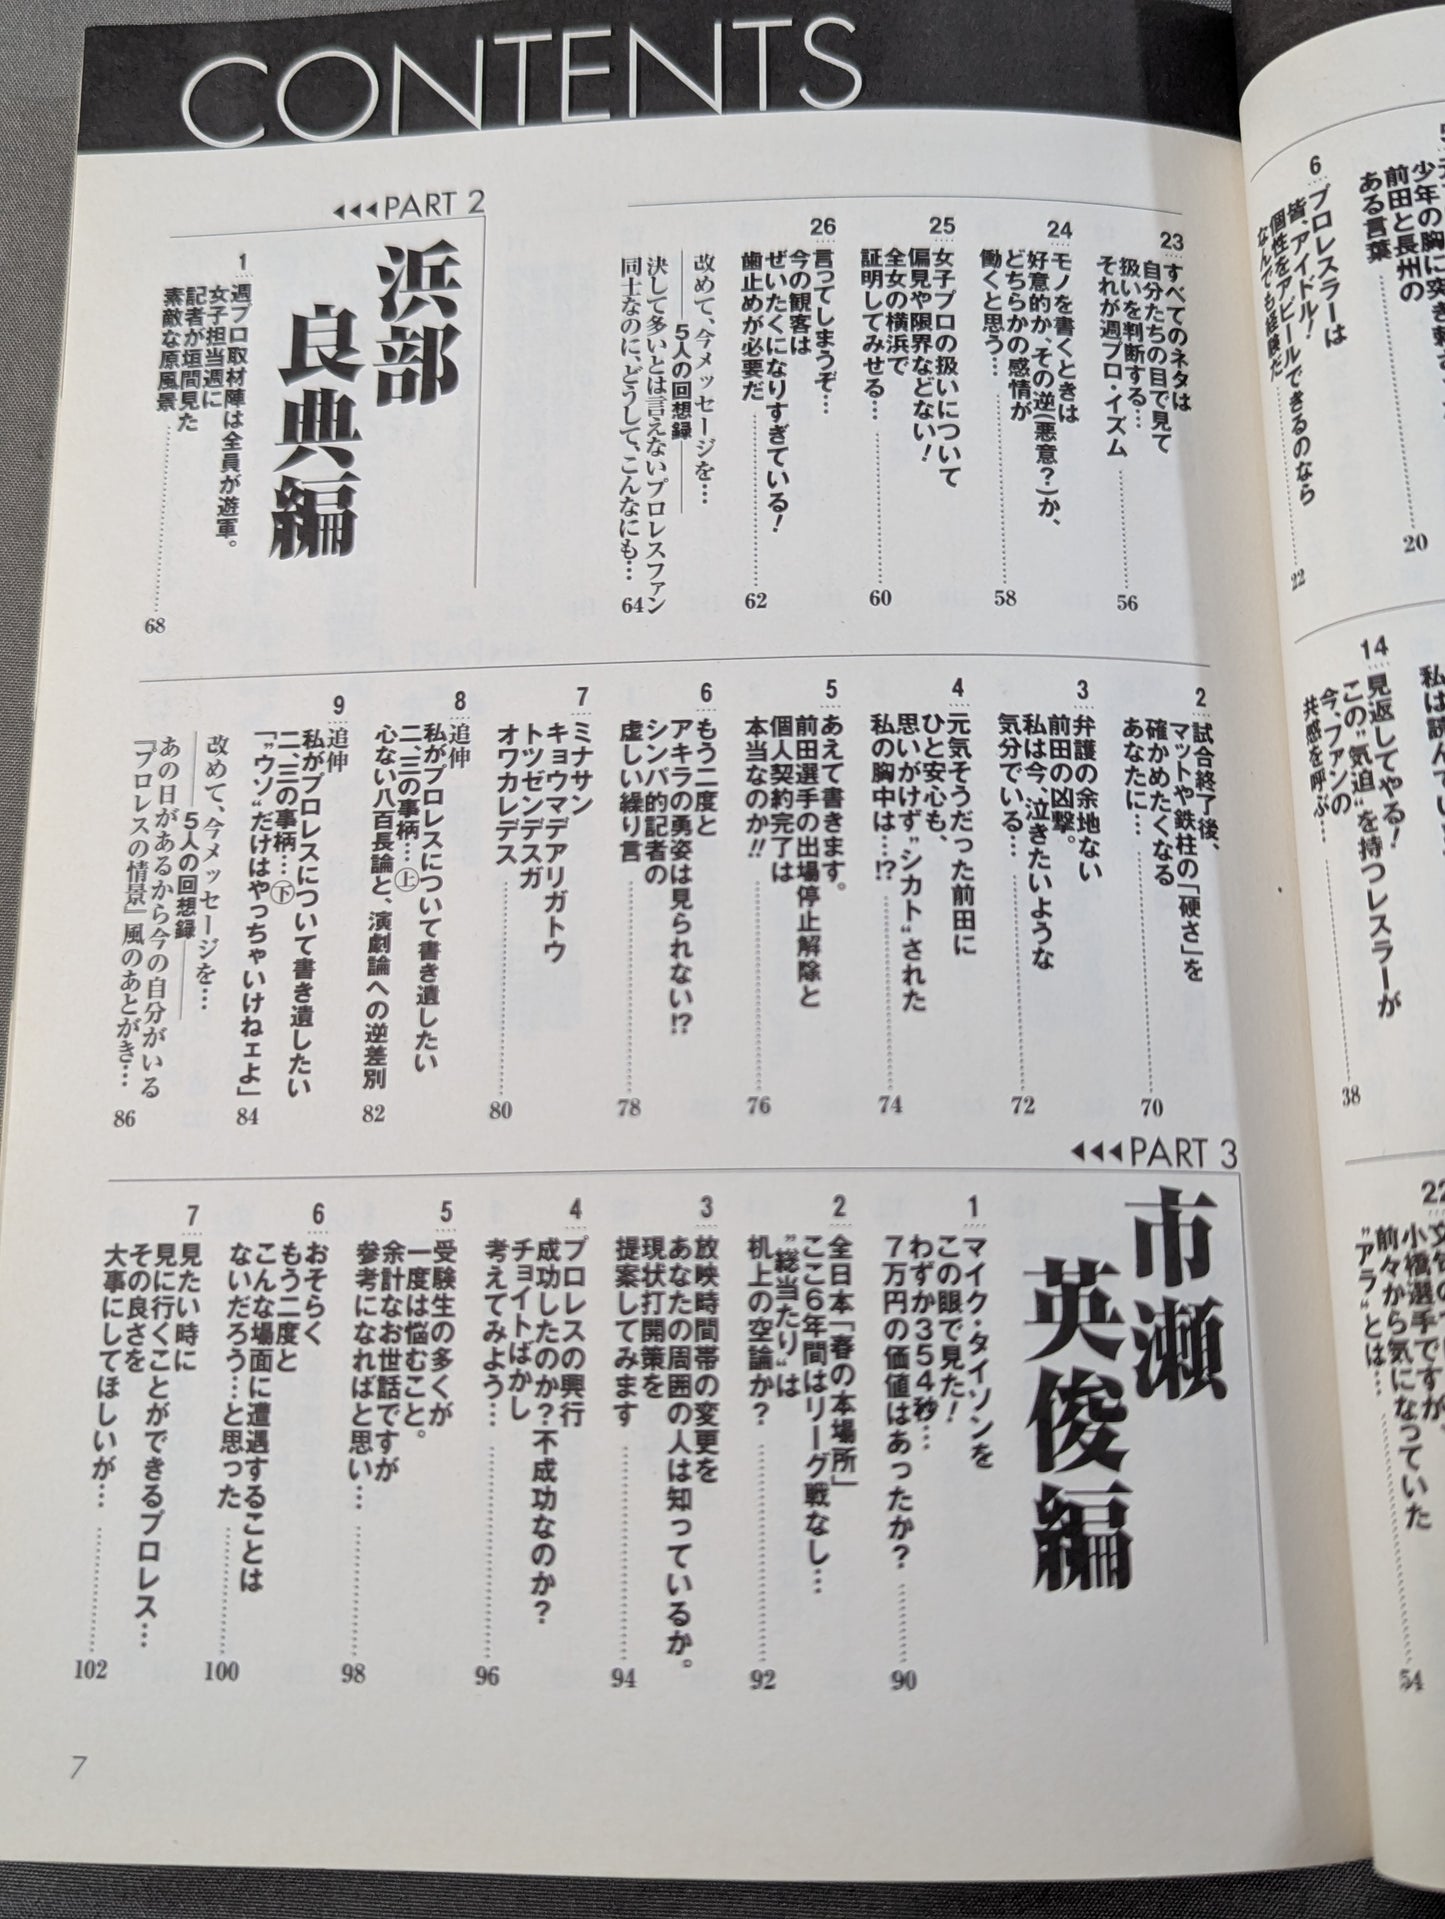 CONTENTS
23
すべてのネタは
自分たちの目で見て
扱いを判断する…
それが週プロ・イズム
56
24
モノを書くときは
好意的か、その逆(悪意?)か、
どちらかの感情が
働くと思う…
58
25
女子プロの扱いについて
偏見や限界などない!
全女の横浜で
証明してみせる…
60
26
言ってしまうぞ…
今の観客は
ぜいたくになりすぎている!
歯止めが必要だ
62
改めて、今メッセージを…
5人の回想録
決して多いとは言えないプロレスファン
同士なのに、どうして、こんなにも…
64
PART 2
浜部
良典編
1
週プロ取材陣は全員が遊軍。
女子担当週に
記者が垣間見た
素敵な原風景
68
2
試合終了後、
マットや鉄柱の「硬さ」を
確かめたくなる
あなたに…
70
3
弁護の余地ない
前田の凶撃。
私は今、泣きたいような
気分でいる…
72
4
元気そうだった前田に
ひと安心も、
思いがけず"シカト"された
私の胸中は…!?
74
5
あえて書きます。
前田選手の出場停止解除と
個人契約完了は
本当なのか!!
76
6
もう二度と
アキラの勇姿は見られない!?
シンパ的記者の
虚しい繰り言
78
7
ミナサン
キョウマデアリガトウ
トツゼンデスガ
オワカレデス
80
8
追伸
私がプロレスについて書き遺したい
二、三の事柄…㊤
心ない八百長論と、演劇論への逆差別
82
9
追伸
私がプロレスについて書き遺したい
二、三の事柄…㊦
「"ウソ"だけはやっちゃいけねェよ」
84
改めて、今メッセージを…
5人の回想録
あの日があるから今の自分がいる
『プロレスの情景』風のあとがき…
86
PART 3
市瀬
英俊編
1
マイク・タイソンを
この眼で見た!
わずか354秒…
7万円の価値はあったか?
90
2
全日本「春の本場所」
ここ6年間はリーグ戦なし…
"総当たり"は
机上の空論か?
92
3
放映時間帯の変更を
あなたの周囲の人は知っているか。
現状打開策を
提案してみます
94
4
プロレスの興行
成功したのか?不成功なのか?
チョイトばかし
考えてみよう…
96
5
受験生の多くが
一度は悩むこと。
余計なお世話ですが
参考になればと思い…
98
6
おそらく
もう二度と
こんな場面に遭遇することは
ないだろう…と思った
100
7
見たい時に
見に行くことができるプロレス…
その良さを
大事にしてほしいが…
102
7
少年の胸に突き刺
前田と長州の
ある言葉
20
6
プロレスラーは
皆、アイドル!
個性をアピールできるのなら
なんでも経験だ
22
14
見返してやる!
この"気迫"を持つレスラーが
今、ファンの
共感を呼ぶ…
38
22
小橋選手ですが、
前々から気になっていた
"アラ"とは…
54